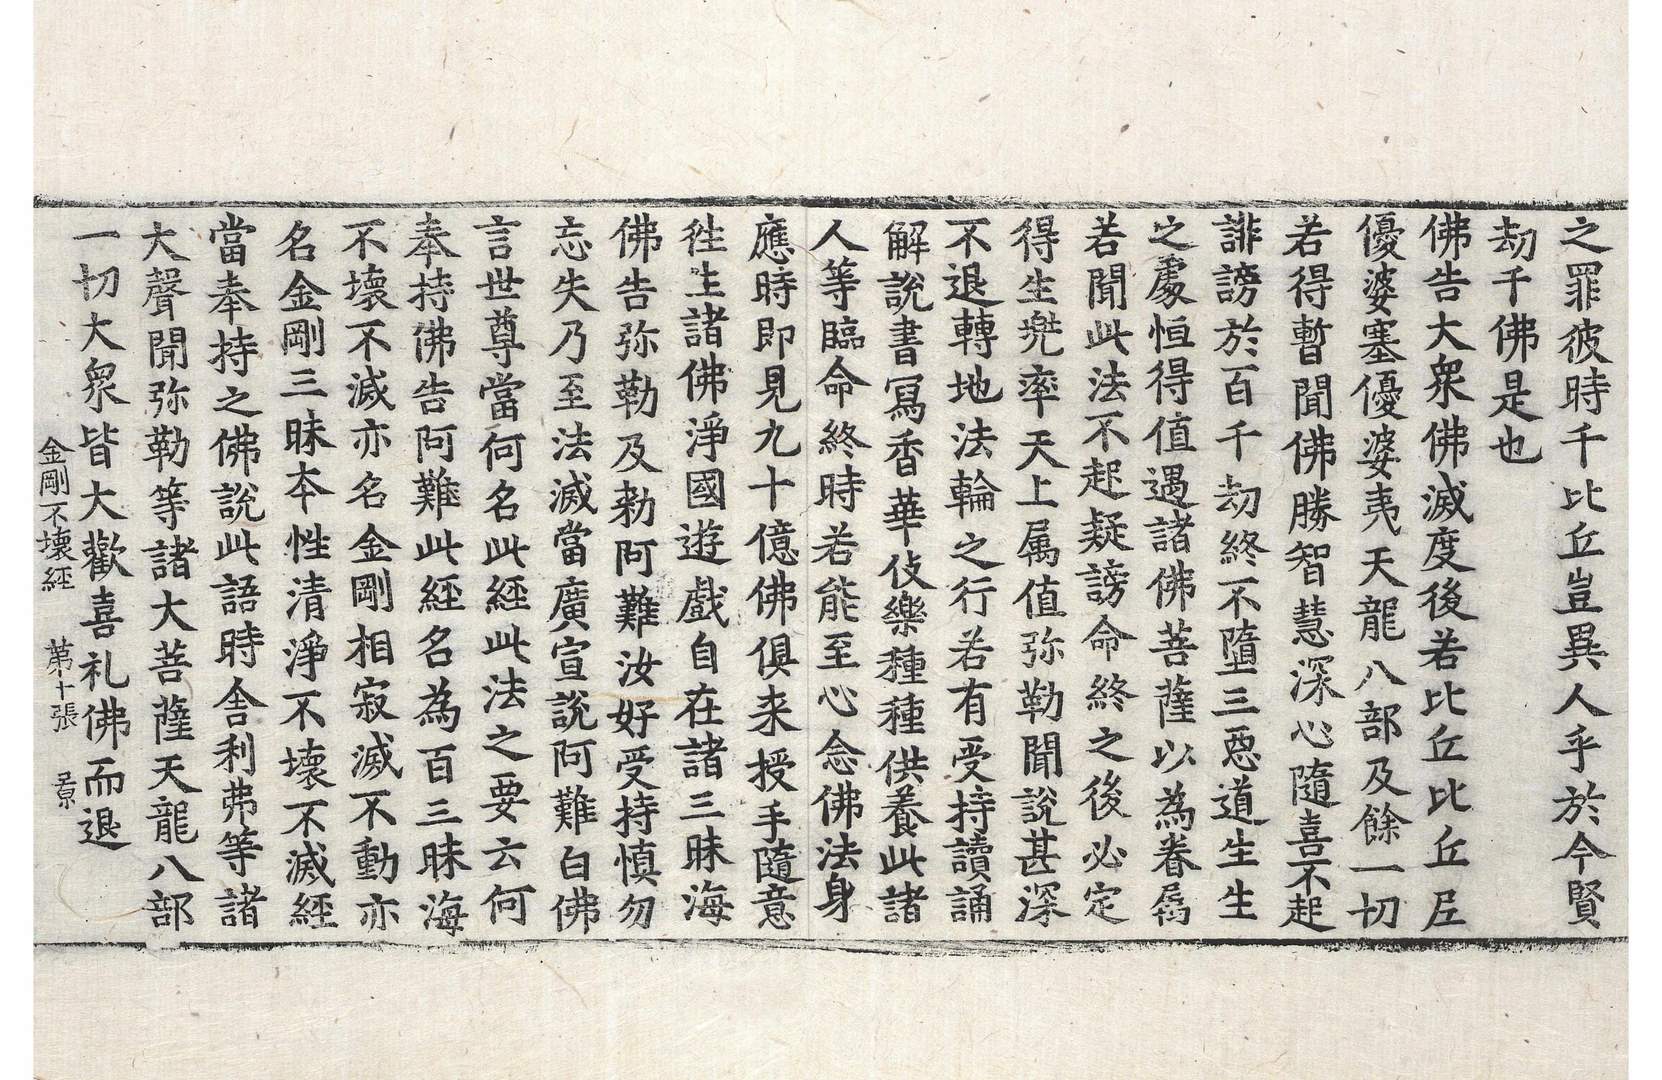 之罪彼時千比丘豈異人乎於今賢
劫千佛是也
佛告大衆佛滅度後若比丘比丘尼
優婆塞優婆夷天龍八部及餘一切
若得暫聞佛勝智慧深心隨喜不起
誹謗於百千劫終不墮三惡道生生
之處恒得值遇諸佛菩薩以為眷屬
若聞此法不起疑謗命終之後必定
得生兠率天上属值弥勒聞說甚深
不退轉地法輪之行若有受持讀誦
解說書寫香華伎樂種種供養此諸
人等臨命終時若能至心念佛法身
應時即見九十億佛俱来授手隨意
徃生諸佛淨國遊戲自在諸三昧海
佛告弥勒及勑阿難汝好受持慎勿
忘失乃至法滅當廣宣說阿難白佛
言世尊當何名此經此法之要云何
奉持佛告阿難此經名為百三昧海
不壞不滅亦名金剛相寂滅不動亦
名金剛三昧本性清淨不壞不滅經
當奉持之佛說此語時舍利弗等諸
大聲聞弥勒等諸大菩薩天龍八部
一切大衆皆大歡喜礼佛而退
金剛不壞經 第十張 景